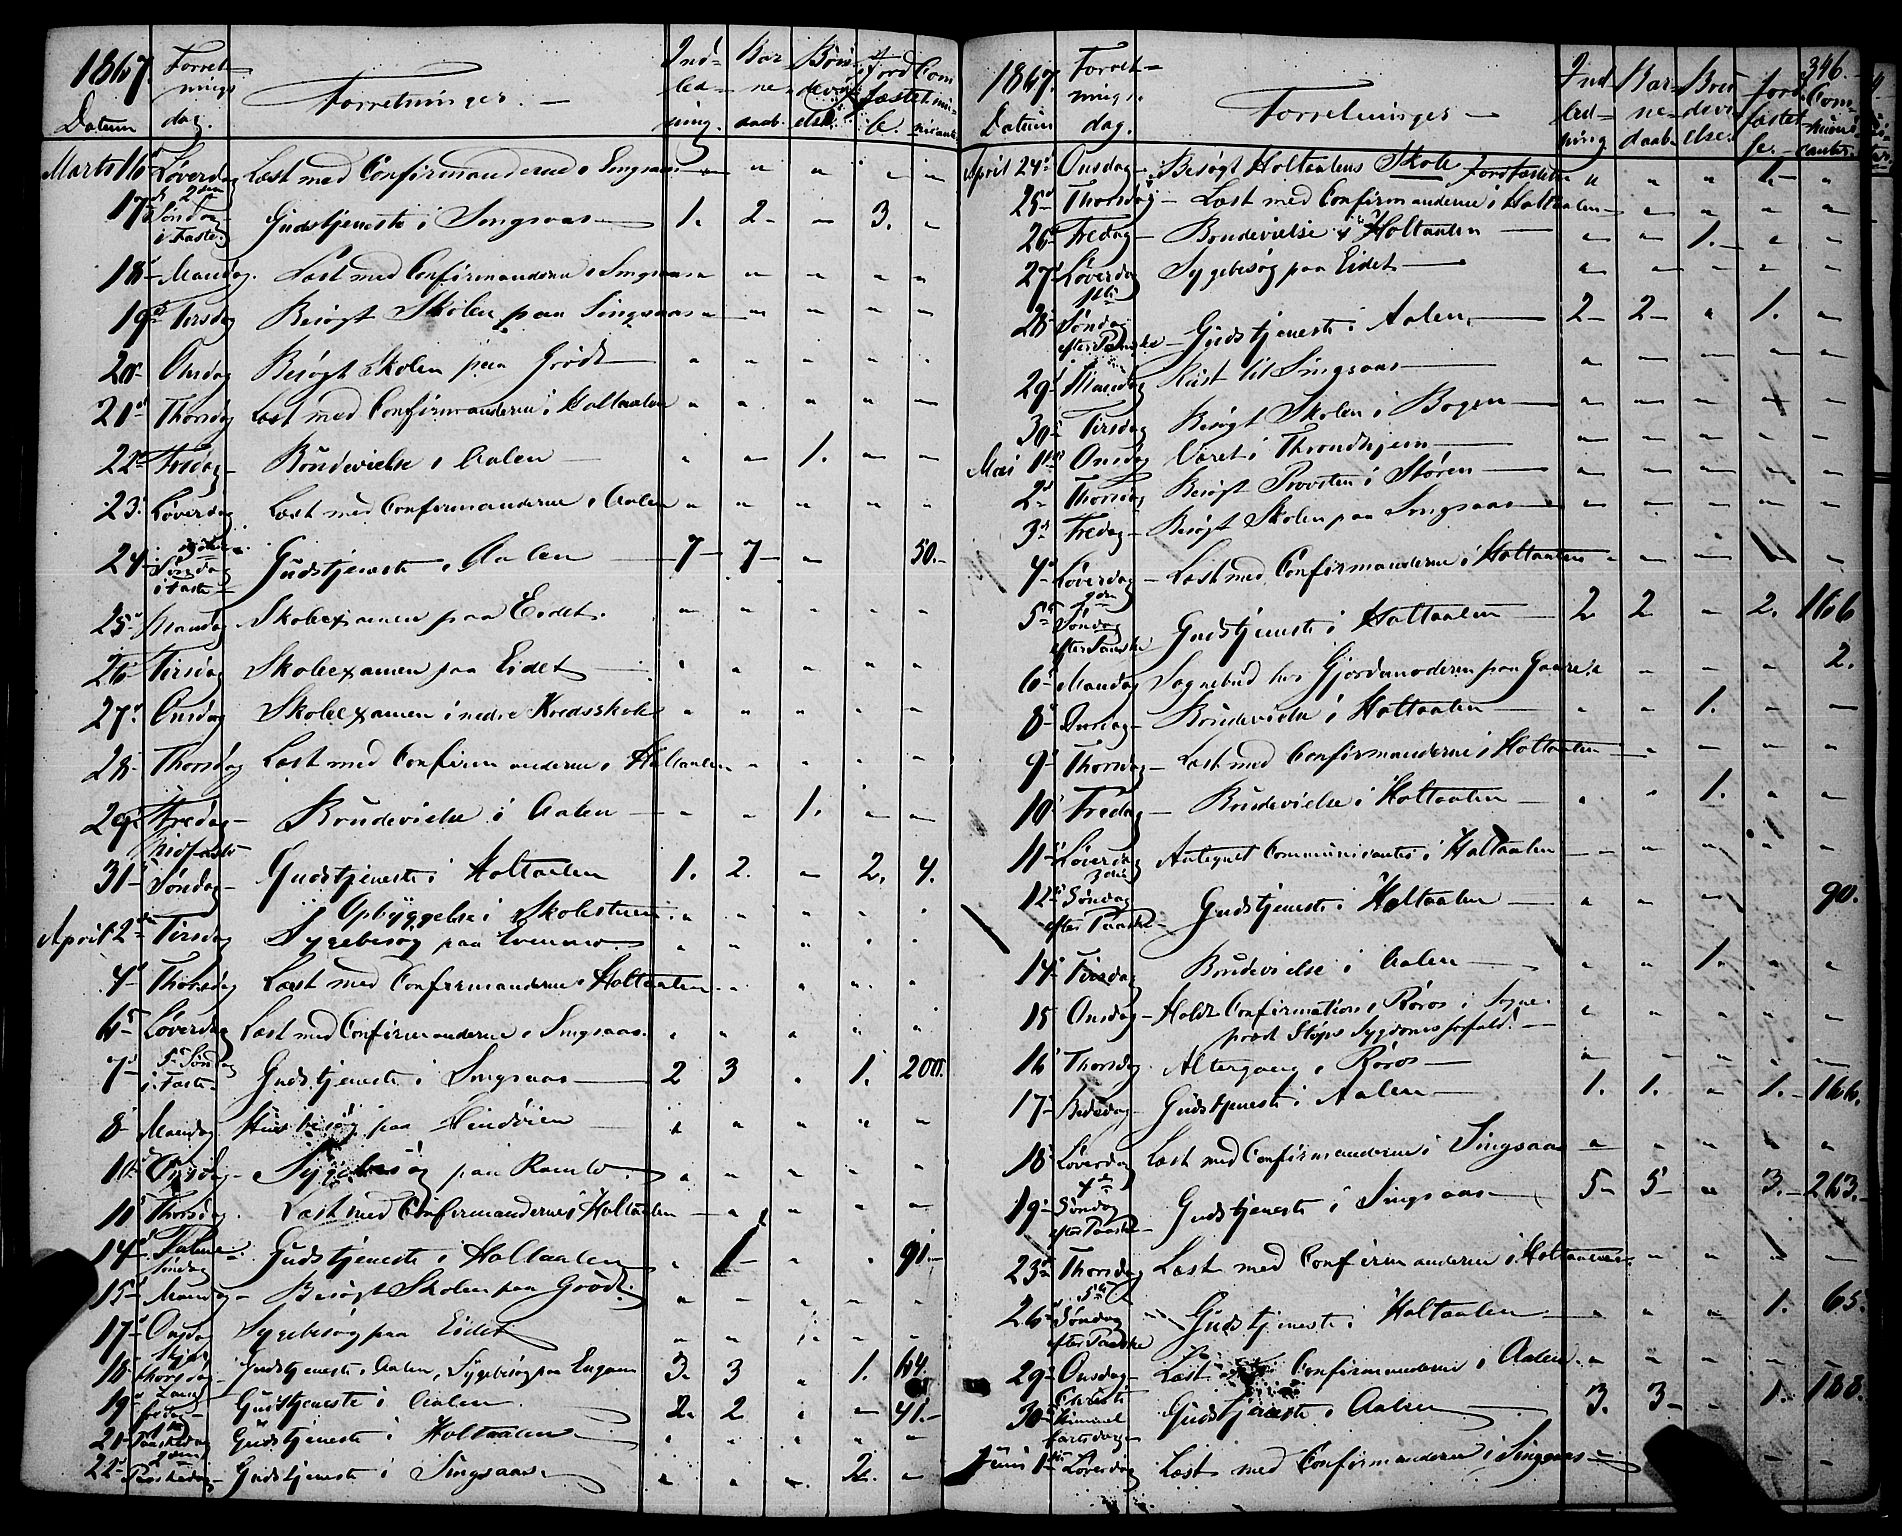 1867. Forret- Forretninger. - Ind- Bar- Brude Jord Com
nings led- ne- vi fæstel- mu-
Datum dag. ning. daab. else se. nicant
Marts 16 Løverdag Læst med Confirmanderne i Singsaas - " " " " "
17 2den Søndag i Faste Gudstjeneste i Singsaas 1. 2 - 3. "
18 Mandag. Læst med Confirmanderne i Singsaas " " " " "
19 Tirsdag Besøgt Skolen paa Singsaas " " " " "
20 Onsdag Besøgt Skolen paa Grødt " " " " "
21 Thorsdag Læst med Confirmanderne i Holtaalen " " " " "
22 Fredag Brudevielse i Aalen " " 1. " "
23 Løverdag Læst med Confirmanderne i Aalen " " " " "
24 Søndag i Faste Gudstjeneste i Aalen 7 - 7 - " 50. -
25 Mandag Skoleexamen paa Eidet. " " " " "
26 Tirsdag Skoleexamen paa Eidet " " " " "
27 Onsdag Skoleexamen i nedre Kredsskole " " " " "
28 Thorsdag Læst med Confirmanderne i Holtaalen " " " "
29 Fredag Brudevielse i Aalen " " 1. " "
31 Midfaste Søndag Gudstjeneste i Holtaalen 1. 2. " 2. 4.
Opbyggelse i Skolestuen " " " " "
April 2 Tirsdag Sygebesøg paa " " " " "
4 Thorsdag Læst med Confirmanderne i Holtaalen " " " "
6 Løverdag Læst med Confirmanderne i Singsaas " " " " "
7 5te Søndag i Faste Gudstjeneste i Singsaas 2 3 " 1. 200.
8 Mandag Husbesøg paa " " " " "
10 Onsdag Sygebesøg paa Ramlo " " " " "
11 Thorsdag. Læst med Confirmanderne i Holtaalen " " " "
14 Palme Søndag Gudstjeneste i Holtaalen " 1 - " " 91. -
15 Mandag - Besøgt Skolen paa Grødt. " " " " "
17 Onsdag Sygebesøg paa Eidet " " " " "
18 Skjær Thorsdag - Gudstjeneste i Aalen, Sygebesøg paa Engan 3. 3 " 1. 64.
19 Lang fredag - Gudstjeneste i Aalen. 2. 2 " - 41. -
21 1ste Paaskedag Gudstjeneste i Holtaalen " " " " "
22 2den Paaskedag Gudstjeneste i Singsaas " " " 2. "
346.
1867. Forret- Forretninger - Ind Bar- Bru Jord Com-
nings. led- ne- devi fæstel- muni
Datum dag. ning daab. else. se. canter.
April 24 Onsdag - Besøgt Holtaalens Skole Jordfæstelse " " " 1 - "
25 Thorsdag - Læst med Confirmanderne i Holtaalen - " " " "
26 Fredag - Brudevielse i Holtaalen " " 1. " "
27 Løverdag Sygebesøg paa Eidet " " " " "
28 1ste Søndag efter Paaske Gudstjeneste i Aalen 2 - 2 - " 1. "
29 Mandag Reist til Singsaas " " " " "
30 Tirsdag Besøgt Skolen i Bogen " " " " "
Mai 1 Onsdag Været i Throndhjem " " " " "
2 Thorsdag Besøgt Provsten i Støren " " " " "
3 Fredag - Besøgt Skolen paa Singsaas " " " " "
4 Løverdag - Læst med Confirmanderne i Holtaalen " " " " "
5 2den Søndag efter Paaske Gudstjeneste i Holtaalen 2 2 " 2. 166
6 Mandag Sognebud hos Gjordemoderen paa " " " " 2.
8 Onsdag - Brudevielse i Holtaalen " " 1. " -
9 Thorsdag - Læst med Confirmanderne i Holtaalen " " " "
10 Fredag - Brudevielse i Holtaalen " " 1. " "
11 Løverdag Antegnet Communicanter i Holtaalen " " " " "
12 3die Søndag efter Paaske Gudstjeneste i Holtaalen " " " 90.
14 Tirsdag Brudevielse i Aalen " " 1. " "
15 Onsdag - Holdt Confirmation i Røros i Sogne-
præst Støps Sygdoms forfald! " " " " "
16 Thorsdag. Altergang i Røros " " " " "
17 Bededag Gudstjeneste i Aalen 1. 1. " 1. - 166.
18 Løverdag Læst med Confirmanderne i Singsaas " " " " "
19 4de Søndag efter Paaske Gudstjeneste i Singsaas 5 - 5 - " 3. - 263. -
23 Thorsdag Læst med Confirmanderne i Holtaalen " " " "
26 5te Søndag efter Paaske Gudstjeneste i Holtaalen " " " 1. 65.
29 Onsdag - Læst Confirmanderne i Aalen. " " " " "
30 Christi Himmel fartsdag Gudstjeneste i Aalen 3. 3 - " 1. 188.
Juni 1 Løverdag Læst med Confirmanderne i Singsaas - " "